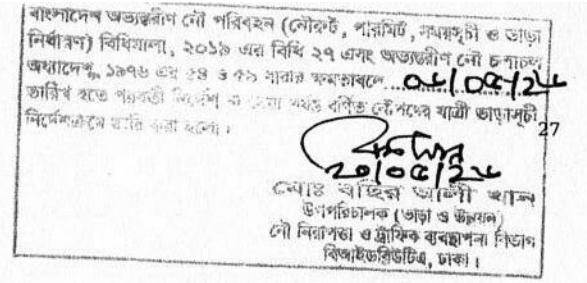 বাংলাদেশ অভ্যন্তরীণ নৌ পরিবহন (নৌরুট, পারমিট, সময়সূচী ও ভাড়া
নির্ধারণ) বিধিমালা, ২০১৯ এর বিধি ২৭ এবং অভ্যন্তরীণ নৌ চলাচল
অধ্যাদেশ, ১৯৭৬ এর ৫৪ ও ৫৯ ধারার ক্ষমতাবলে
তারিখ হতে পরবর্তী নির্দেশ না দেয়া পর্যন্ত বর্ণিত নৌপথের যাত্রী ভাড়াসূচী
27
নির্দেশক্রমে জারি করা হলো।
মোঃ আলী খান
উপপরিচালক (ভাড়া ও উন্নয়ন)
নৌ নিরাপত্তা ও ট্রাফিক ব্যবস্থাপনা বিভাগ
বিআইডব্লিউটিএ, ঢাকা।